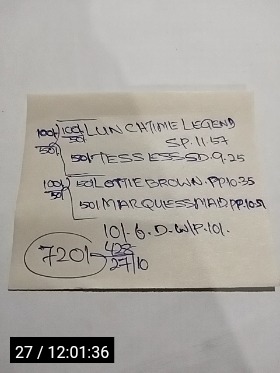 100/ 100/ LUNCHTIME LEGEND
50/ 50/ SP. 11.57
50/ TESS ESS SD. 9.25
100/ 50/ LOTTIE BROWN. PP 10.35
50/ 50/ MARQUESS MAD PP 10.51
10/. 6. D. W/P. 10/.
428
720/ 27/10
27 / 12:01:36